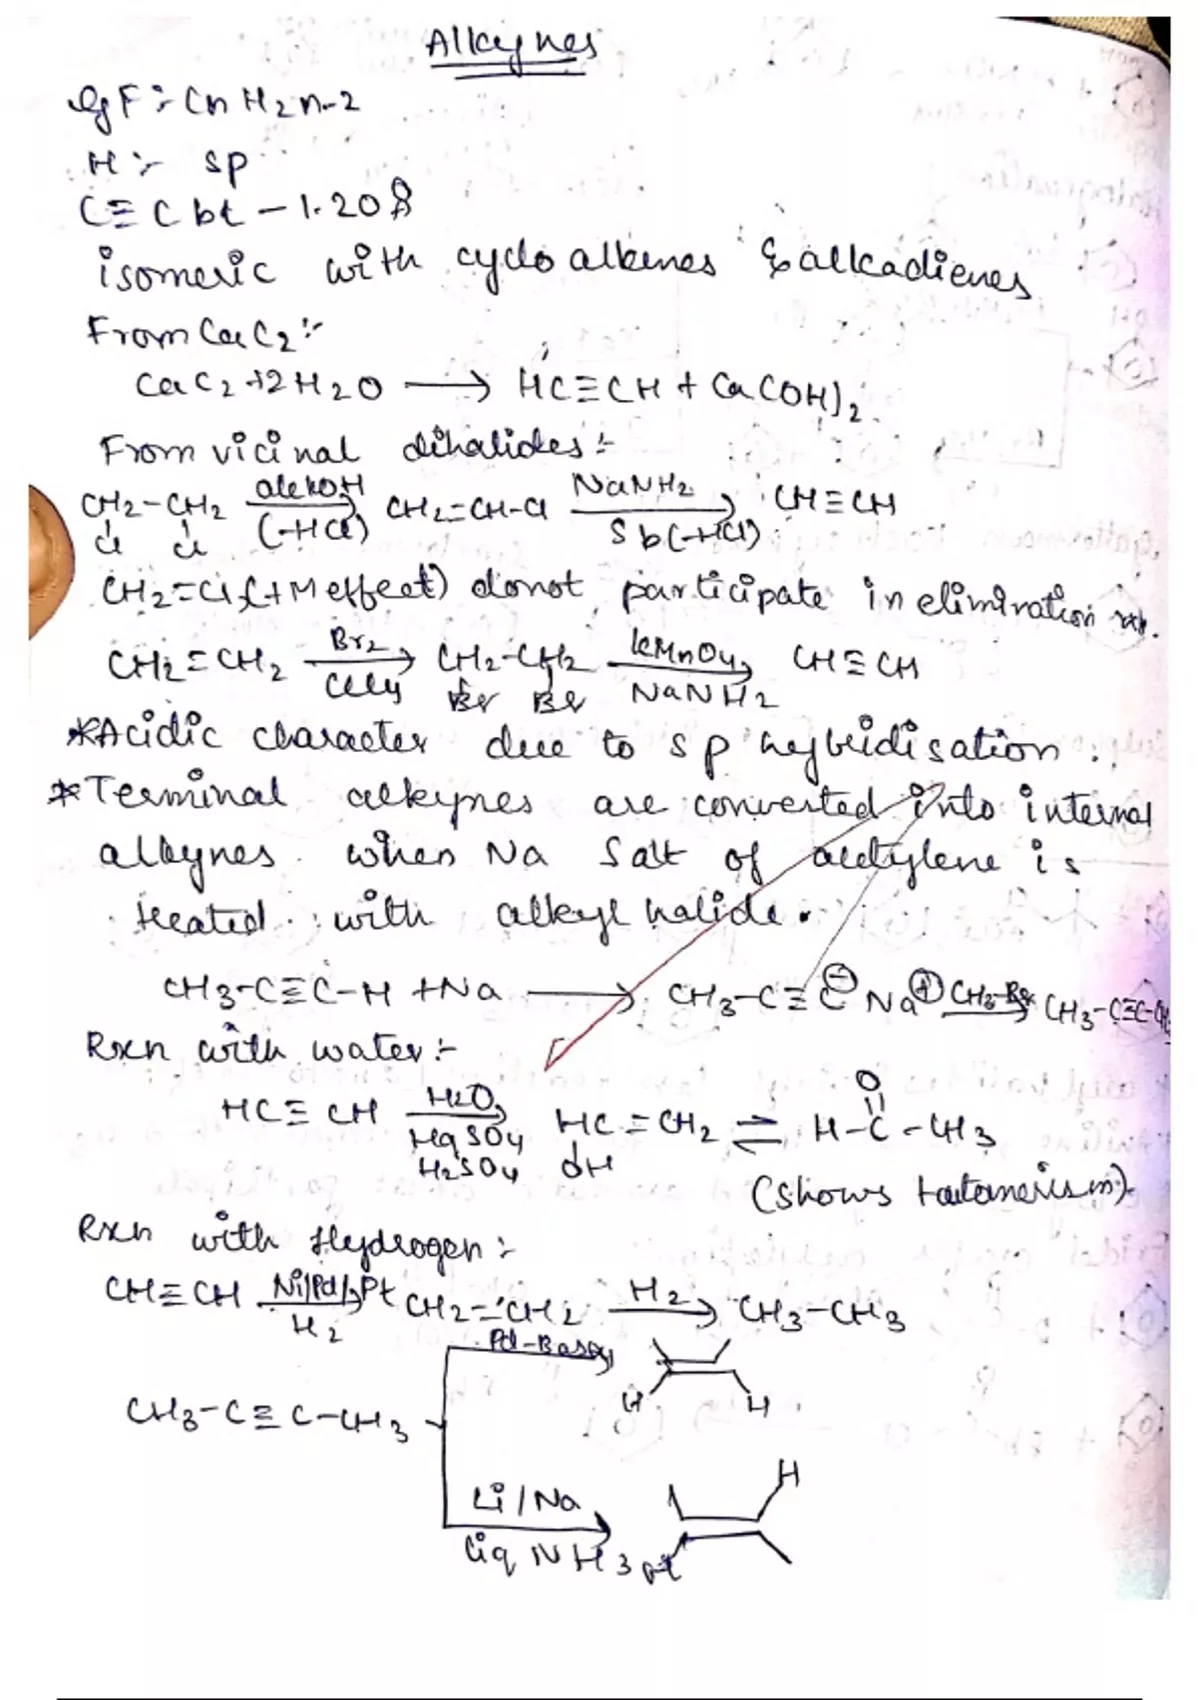 Alkynes
GF :- CnH2n-2
H :- sp
C≡C bt - 1.20Å
isomeric with cycloalkenes & alkadienes
From CaC2 :-
CaC2 + 2H2O ⟶ HC≡CH + Ca(OH)2
From vicinal dihalides :-
CH2-CH2 alc KOH CH2=CH-Cl NaNH2 CH≡CH
Cl Cl (-HCl) Sb(-HCl)
CH2=Cl (+M effect) donot participate in elimination rxn.
CH2=CH2 Br2 CH2-CH2 KMnO4 CH≡CH
CCl4 Br Br NaNH2
*Acidic character due to sp hybridisation.
*Terminal alkynes are converted into internal
alkynes when Na Salt of acetylene is
treated with alkyl halide.
CH3-C≡C-H + Na ⟶ CH3-C≡C⊖ Na⊕ CH3-Br CH3-C≡C-CH3
Rxn with water :-
O
HC≡CH H2O HC=CH2 ⇌ H-C-CH3
HgSO4 OH
H2SO4
(Shows tautomerism).
Rxn with Hydrogen :-
CH≡CH Ni/Pd/Pt CH2=CH2 H2 CH3-CH3
H2
Pd-BaSO4
H H
CH3-C≡C-CH3
H
Li/Na
liq NH3 H